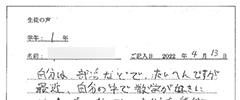 生徒の声
学年: 1 年
名前: ご記入日 2022 年 4 月 13 日
自分は、部活などで、たいへんですが
最近、自分の中で数学が好きに